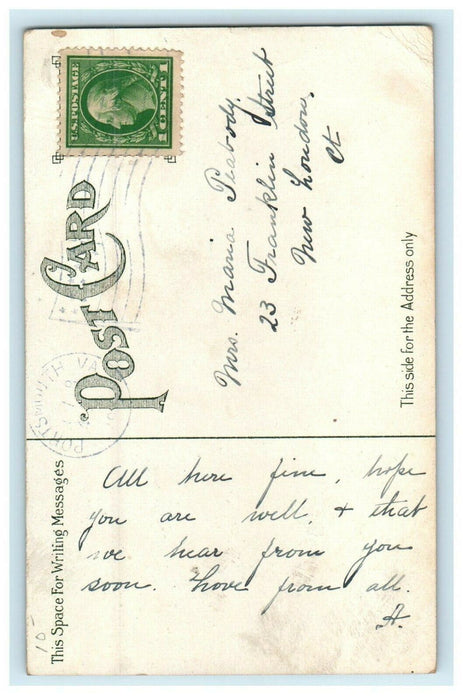 U.S. POSTAGE
1 CENT 1
POST CARD
PORTSMOUTH VA
Mrs. Maria Peabody
23 Franklin Street
New London,
Ct
This side for the Address only
This Space For Writing Messages
All here fine, hope
you are well, + that
we hear from you
soon. Love from all.
A.
10-